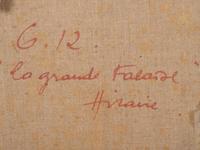 G. 12.
"la grande Falaise"